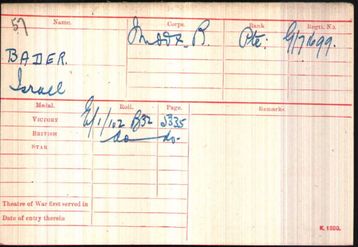 57
Name. Corps. Rank Regtl. No.
BADER. Midd'x. R. Pte. G/71699.
Israel
Medal. Roll. Page. Remarks.
VICTORY G/1/102 B32 5335
BRITISH do do.
STAR
Theatre of War first served in
Date of entry therein
K. 1380.